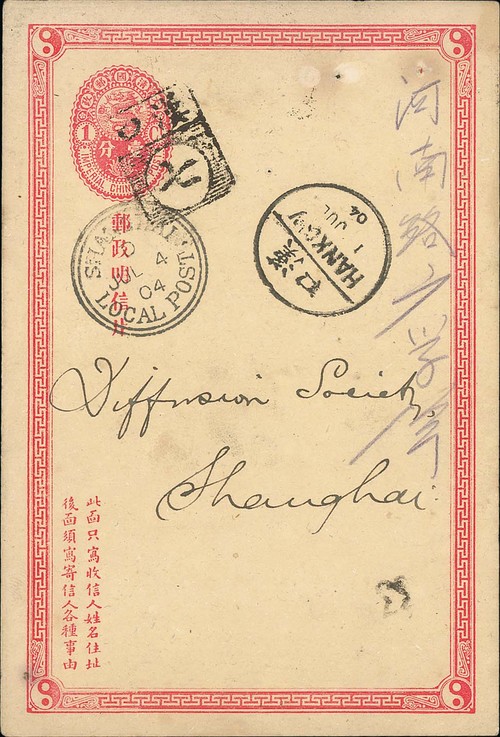 1 C
壹分
郵政明信片
SHANGHAI
D
JUL 4
04
LOCAL POST
漢口
HANKOW
1
JUL
04
河南路廣學會
Diffusion Society
Shanghai.
此面只寫收信人姓名住址
後面須寫寄信人各種事由